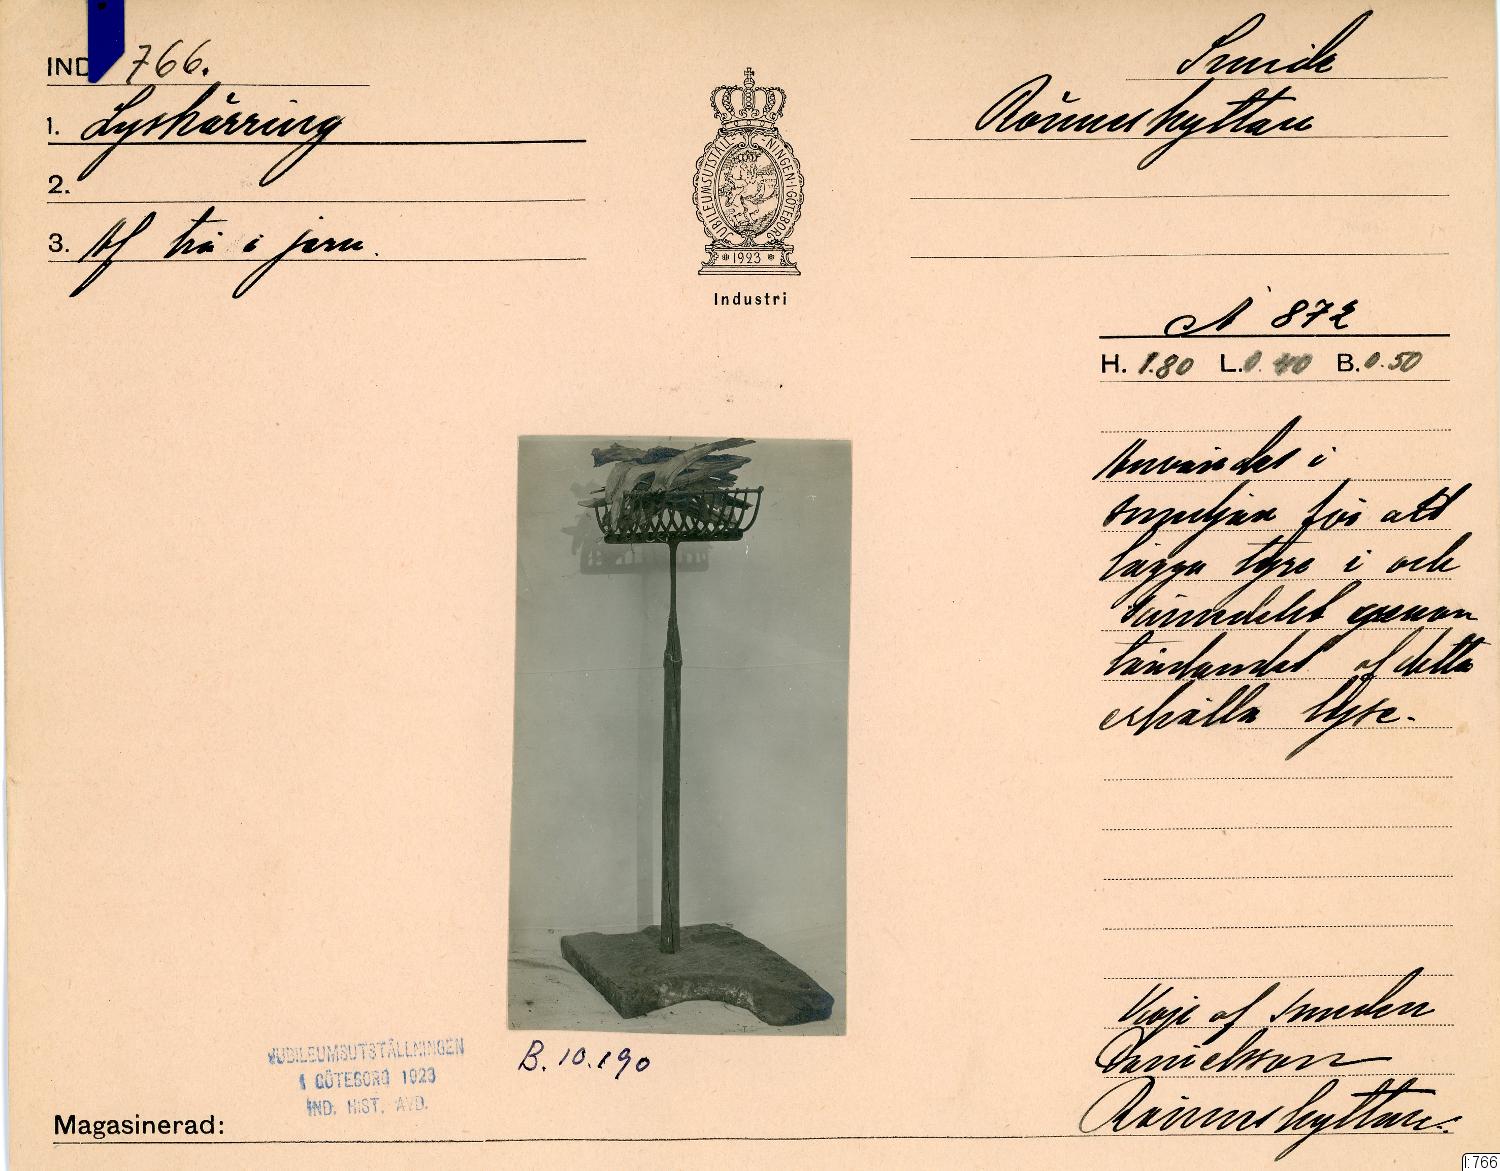 IND 766.
1. Lyskärring
2.
3. Af trä i jern.
JUBILEUMSUTSTÄLLNINGEN I GÖTEBORG
1923
Industri
Smide
Rönneshyttan
A 872
H. 1.80 L. 0.40 B. 0.50
Användes i
smedjan för att
lägga tyre i och
därmedelst genom
tändandet af detta
erhålla lyse.
Köpt af smeden
Danielsson
Rönneshyttan.
B. 10.190
JUBILEUMSUTSTÄLLNINGEN
I GÖTEBORG 1923
IND. HIST. AVD.
Magasinerad:
I:766